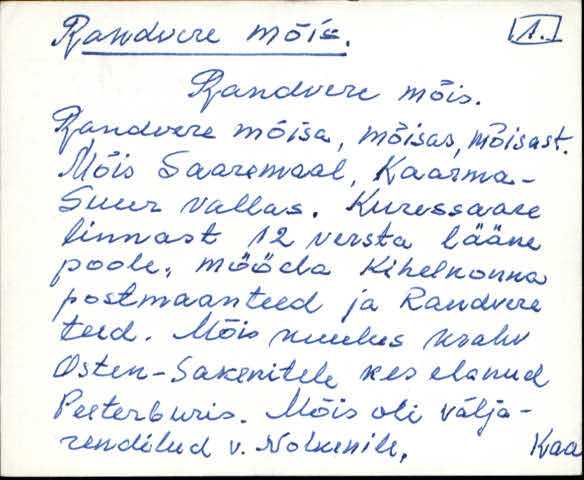 Randvere mõis. 1.
Randvere mõis.
Randvere mõisa, mõisas, mõisast.
Mõis Saaremaal, Kaarma-
Suur vallas. Kuressaare
linnast 12 versta lääne
poole, mööda Kihelkonna
postmaanteed ja Randvere
teed. Mõis kuulus krahv
Osten-Sakenitele kes elanud
Peeterburis. Mõis oli välja-
rendilud v. Nolkenile, Kaa